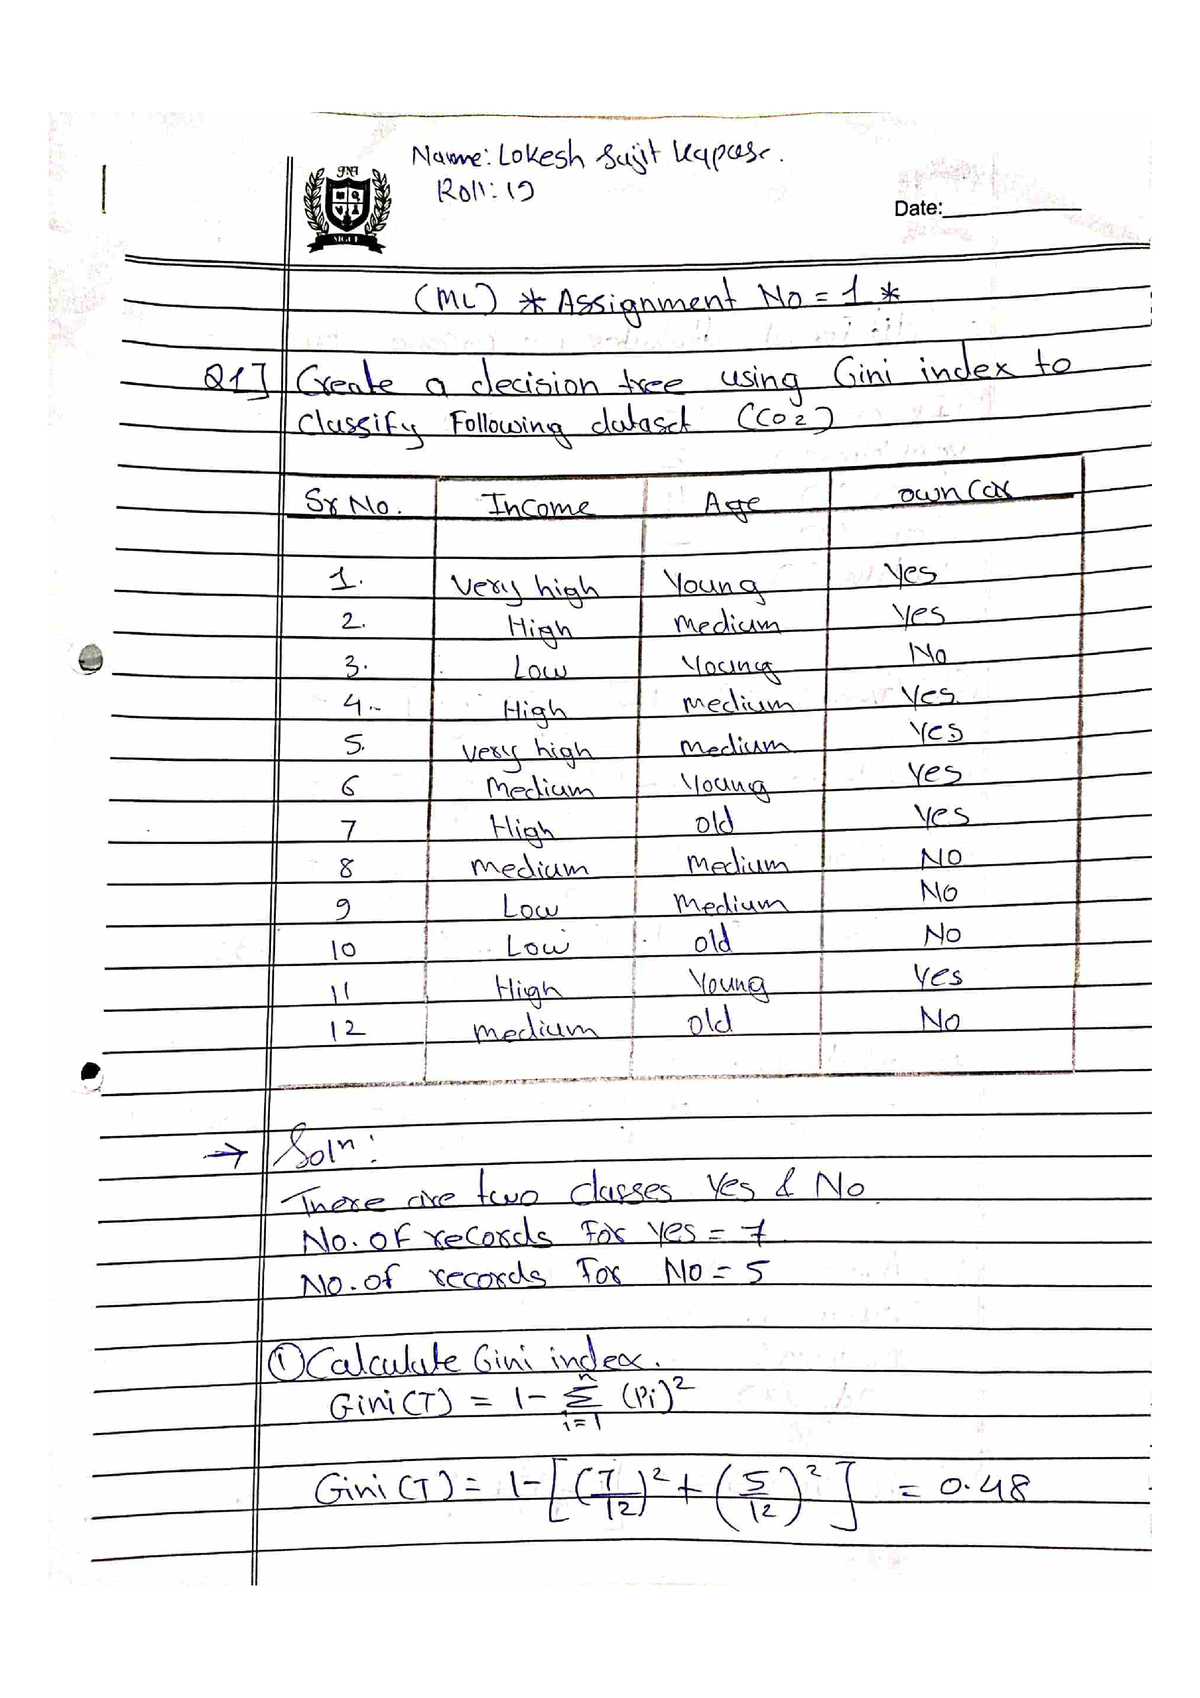 Name: Lokesh Sujit Kapase.
Roll: 19
Date:
(ML) * Assignment No = 1 *
Q1] Create a decision tree using Gini index to
classify Following dataset (CO2)
Sr No. Income Age own Car
1. Very high Young Yes
2. High medium Yes
3. Low Young No
4. High medium Yes
5. very high medium Yes
6 Medium Young Yes
7 High old Yes
8 medium Medium NO
9 Low Medium No
10 Low old No
11 High Young Yes
12 medium old No
→ Soln:
There are two classes Yes & No
No. of records for yes = 7
No. of records For No = 5
① Calculate Gini index.
Gini(T) = 1 - n Σ i=1 (Pi)²
Gini(T) = 1 - [(7/12)² + (5/12)²] = 0.48